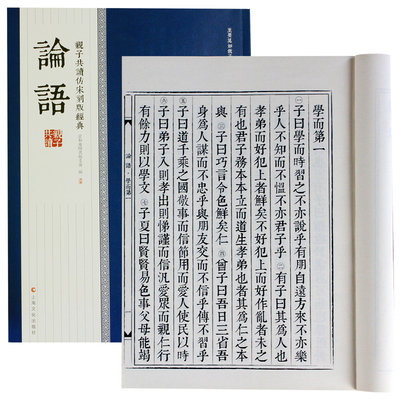 親子共讀仿宋刻版經典
論語
學而第一
㊀子曰學而時習之不亦說乎有朋自遠方來不亦樂
乎人不知而不慍不亦君子乎㊁有子曰其爲人也
孝弟而好犯上者鮮矣不好犯上而好作亂者未之
有也君子務本本立而道生孝弟也者其爲仁之本
與㊂子曰巧言令色鮮矣仁㊃曾子曰吾日三省吾
身爲人謀而不忠乎與朋友交而不信乎傳不習乎
㊄子曰道千乘之國敬事而信節用而愛人使民以時
㊅子曰弟子入則孝出則悌謹而信汎愛眾而親仁行
有餘力則以學文㊆子夏曰賢賢易色事父母能竭
論語·學而第一